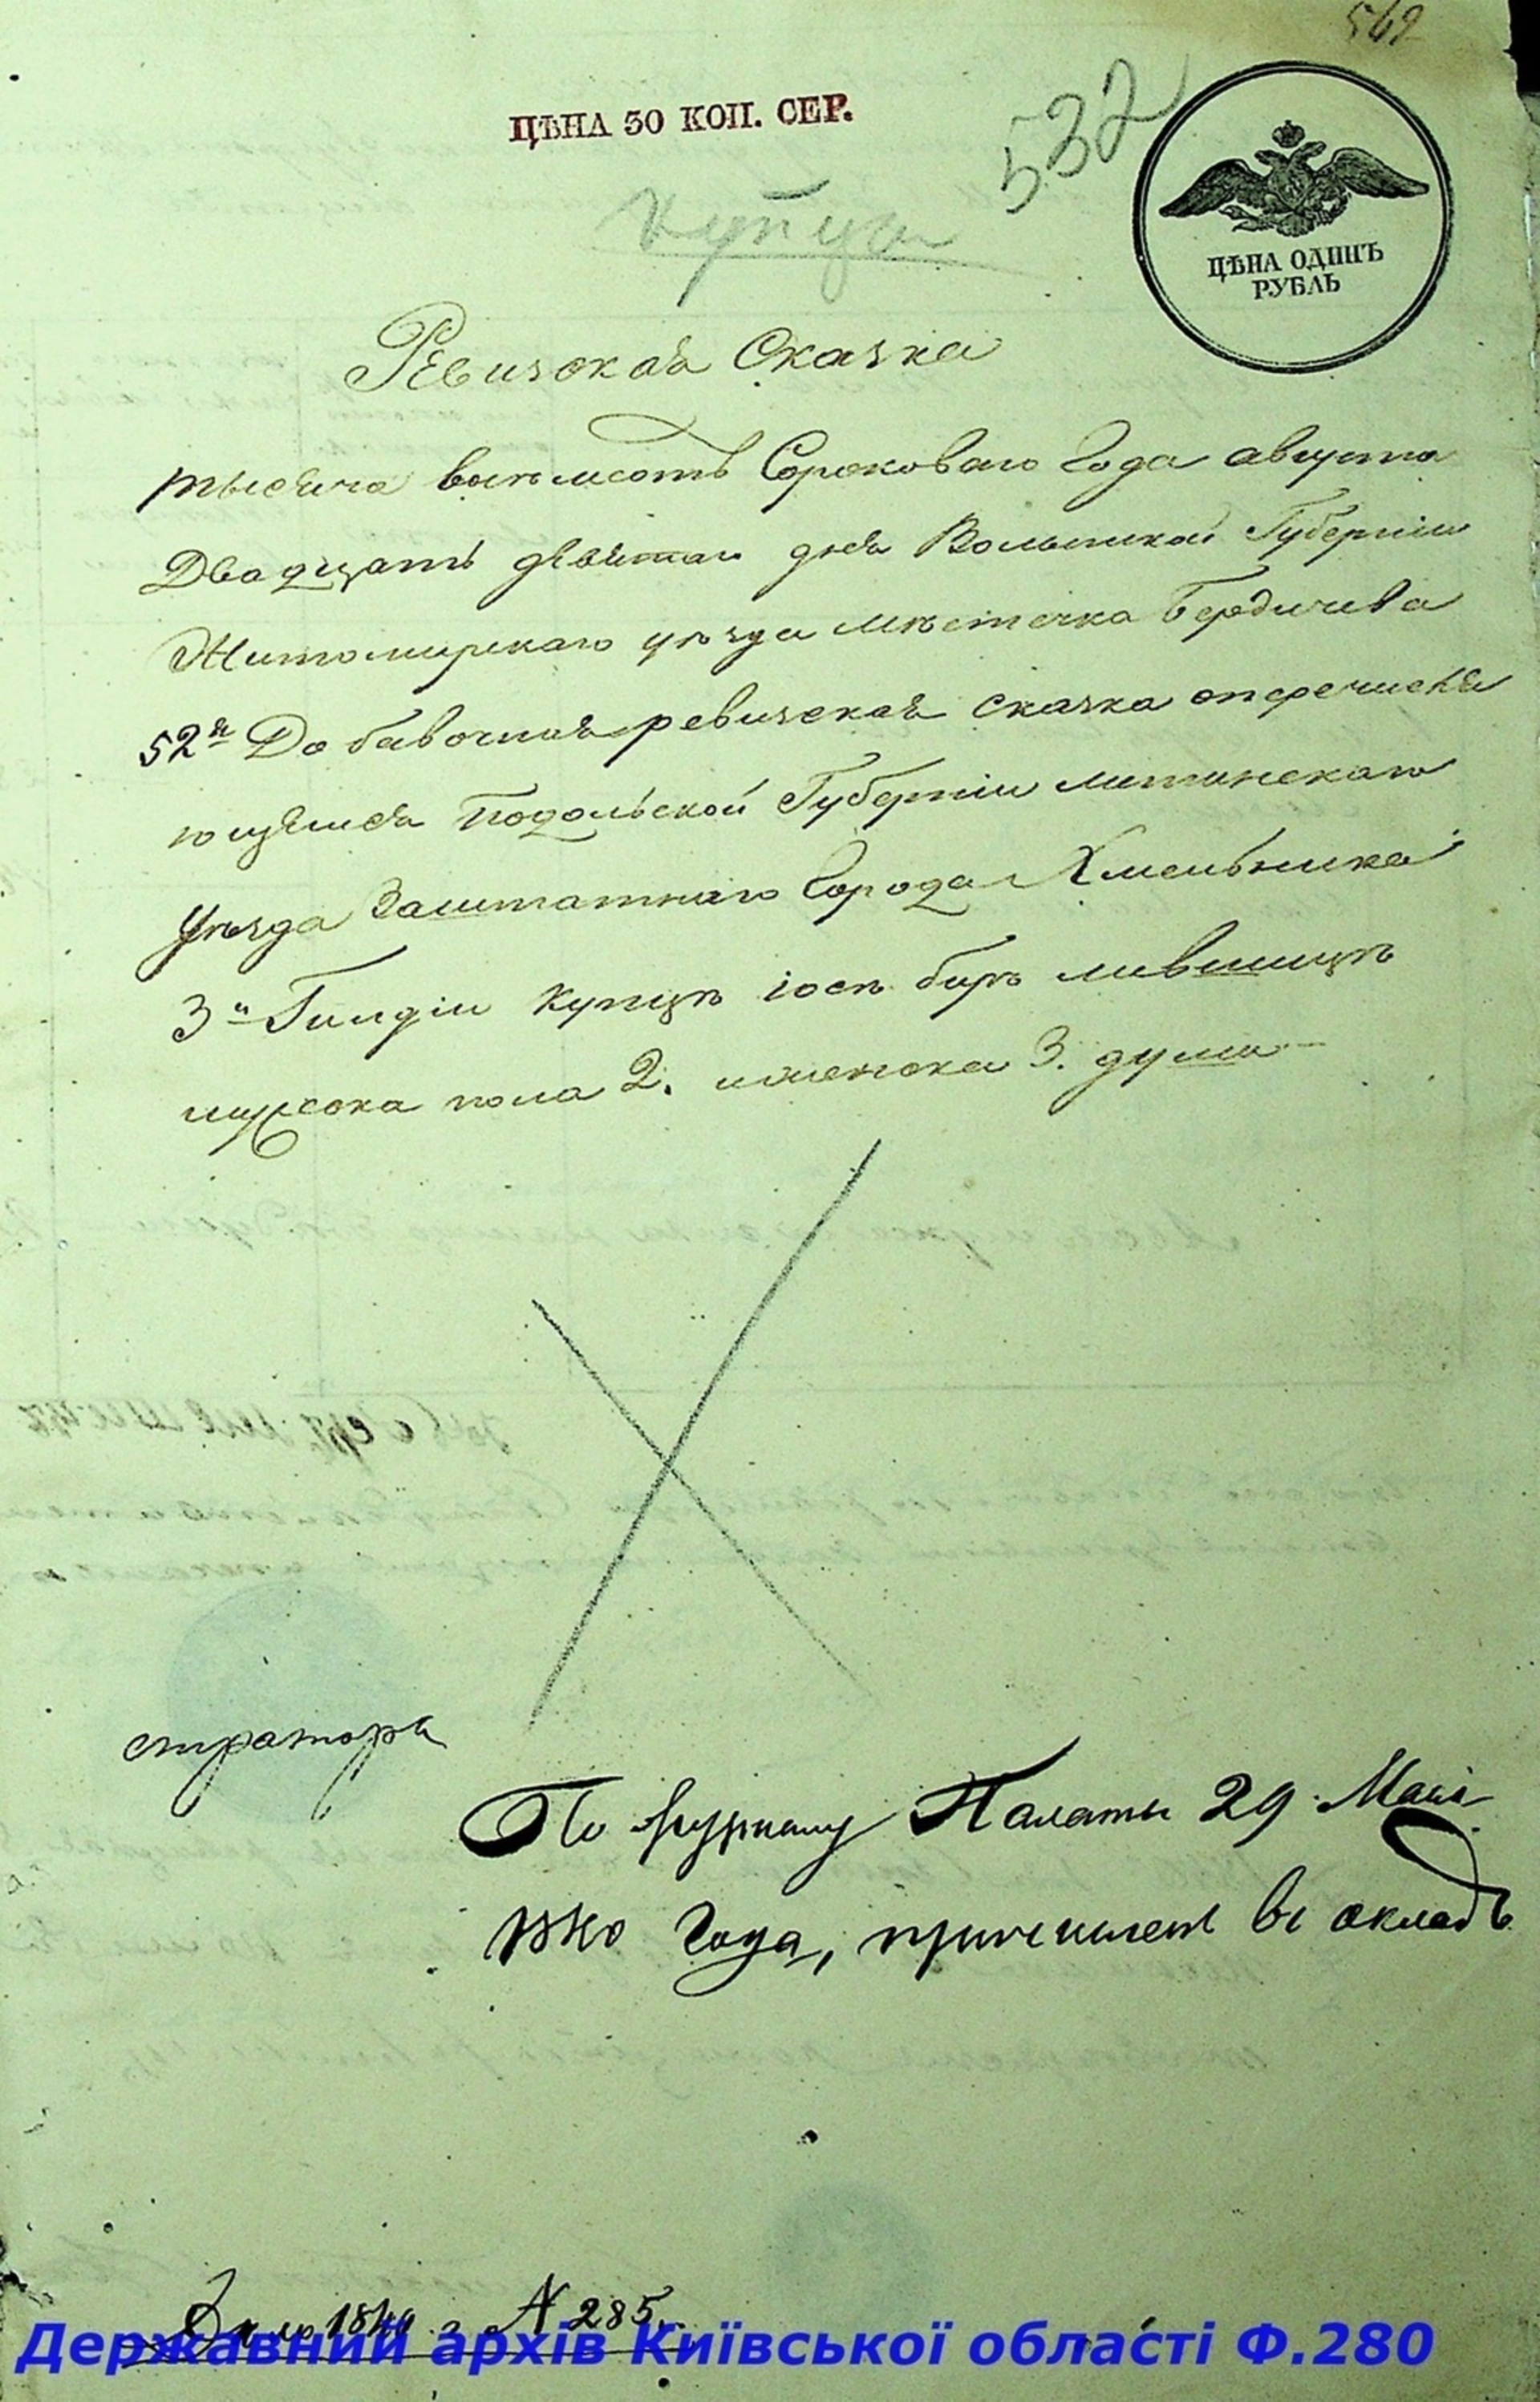 569
ЦѢНА 50 КОП. СЕР.
532
купца
ЦѢНА ОДИНЪ
РУБЛЬ
Ревизская Сказка
тысяча восѣмсотъ Сороковаго Года августа
Двадцать девятаго дня Волынской Губерніи
Житомирскаго уѣзда мѣстечка Бердичева
52я Добавочная ревизская сказка о перечисля
ющемся Подольской Губерніи литинскаго
уѣзда Заштатнаго Города Хмельника
3й Гильдіи Купцѣ іосѣ берѣ лившицѣ
мужеска пола 2. женска 3. души
стратора
По журналу Палаты 29 Мая
1840 Года, причислен въ окладъ
1840 N 285.
Державний архів Київської області Ф.280